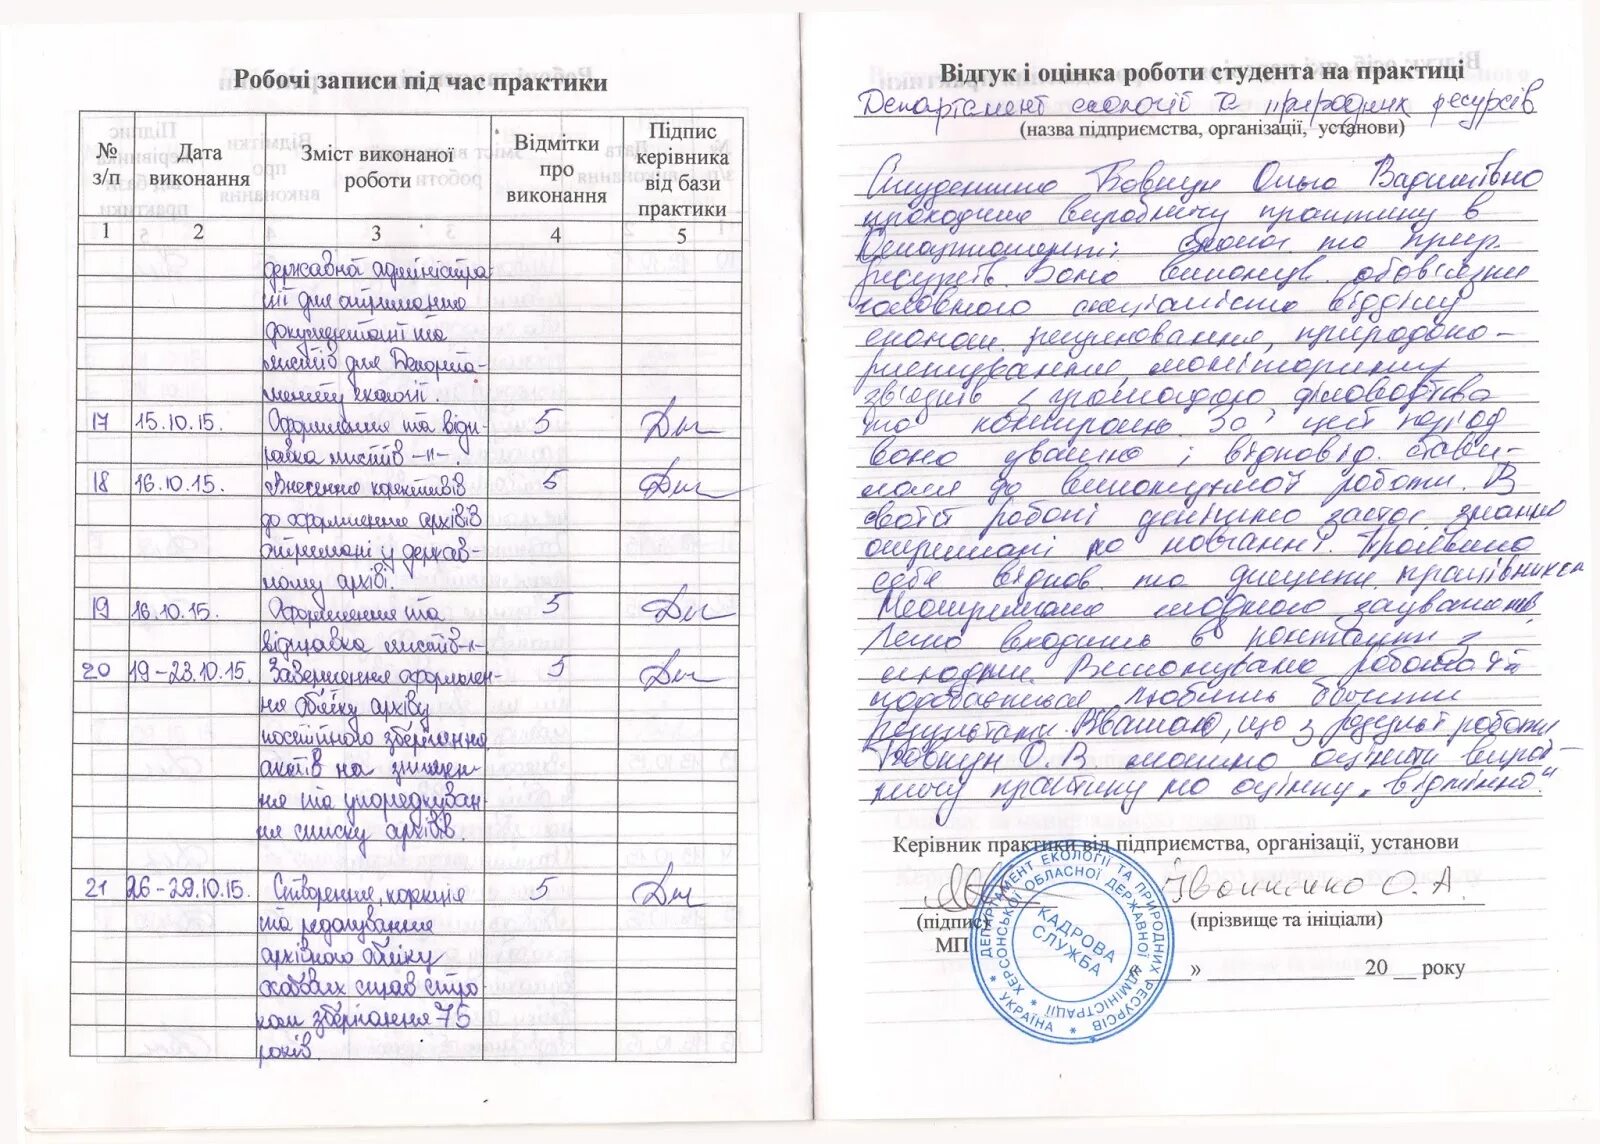 Робочі записи під час практики
№ з/п
Дата виконання
Зміст виконаної роботи
Відмітки про виконання
Підпис керівника від бази практики
1 2 3 4 5
державної адміністра-
ції для отримання
документації та
листів для Департа-
менту екології.
17 15.10.15. Оформлення та відп- 5
равка листів -//-.
18 16.10.15. Внесення корективів 5
до оформлення архівів
отримані у держав-
ному архіві.
19 16.10.15. Оформлення та 5
відправка листів -//-
20 19-23.10.15. Завершення оформлен- 5
ня обліку архіву
постійного зберігання
актів на знищен-
ня та упорядкуван-
ня списку архівів.
21 26-29.10.15. Створення, корекція 5
та редагування
архівного обліку
особових справ стро-
ком зберігання 75
років.
Відгук і оцінка роботи студента на практиці
Департамент екології та природних ресурсів
(назва підприємства, організації, установи)
Студентка Ковжун Ольга Вадимівна
проходила виробничу практику в
Департаменті та прир.
ресурсів. Вона виконув. обов'язки
головного спеціаліста відділу
економ. регулювання, природоко-
ристування, моніторингу,
зв'язків з громадою, діловодства
та контролю. За цей період
вона уважно і відповід. стави-
лася до виконуємої роботи. В
своїй роботі застос. знання
отримані по навчанні. Проявила
себе віднов. та дисципл. працівником
Неотримала жодного зауваження.
Легко входить в контакти з
людьми. Виконувана робота їй
подобається, любить бачити
результати. Вважаю, що з роботи
Ковжун О.В можна оцінити вироб-
ничу практику на оцінку „відмінно“.
Керівник практики від підприємства, організації, установи
Іванненко О.А
(підпис) (прізвище та ініціали)
МП
» 20 року
ДЕПАРТАМЕНТ ЕКОЛОГІЇ ТА ПРИРОДНИХ РЕСУРСІВ
ХЕРСОНСЬКОЇ ОБЛАСНОЇ ДЕРЖАВНОЇ АДМІНІСТРАЦІЇ
* УКРАЇНА *
КАДРОВА
СЛУЖБА